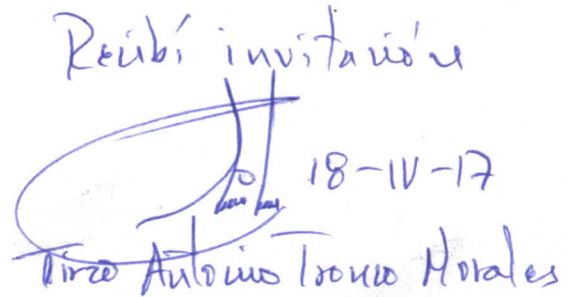 Recibí invitación
18-IV-17
Tirzo Antonio Tronco Morales